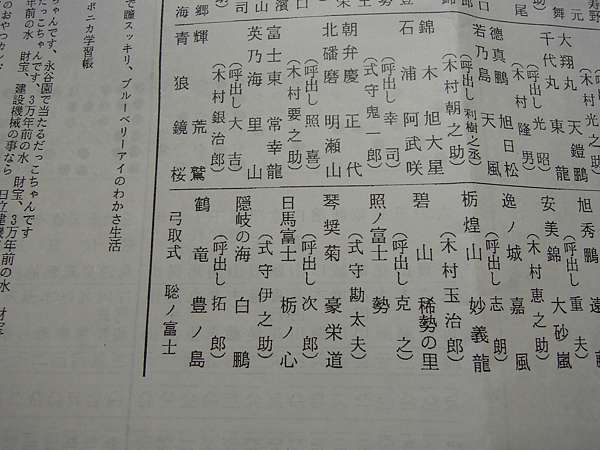 大翔丸 天鎧鵬
(呼出し 光昭)
千代丸 東龍
(木村隆男)
徳真鵬 旭日松
(呼出し 利樹之丞)
若乃島 天風
(木村朝之助)
錦木 旭大星
(呼出し 幸司)
石浦 阿武咲
(式守鬼一郎)
朝弁慶 正代
(呼出し 照喜)
北磻磨 明瀬山
(木村要之助)
富士東 常幸龍
(呼出し 大吉)
英乃海 里山
(木村銀治郎)
輝 荒鷲
青狼 鏡桜
旭秀鵬 遠
(呼出し 重夫)
安美錦 大砂嵐
(木村恵之助)
逸ノ城 嘉風
(呼出し 志朗)
栃煌山 妙義龍
(木村玉治郎)
碧山 稀勢の里
(呼出し 克之)
照ノ富士 勢
(式守勘太夫)
琴奨菊 豪栄道
(呼出し 次郎)
日馬富士 栃ノ心
(式守伊之助)
隠岐の海 白鵬
(呼出し 拓郎)
鶴竜 豊ノ島
弓取式 聡ノ富士
で瞳スッキリ、ブルーベリーアイのわかさ生活
ポニカ学習帳
ゃんです、永谷園で当たるだっこちゃんです
だっこちゃんです、3万年前の水 財宝、3万年前の水
年前の水 財宝、建設機械の事なら 日立建機